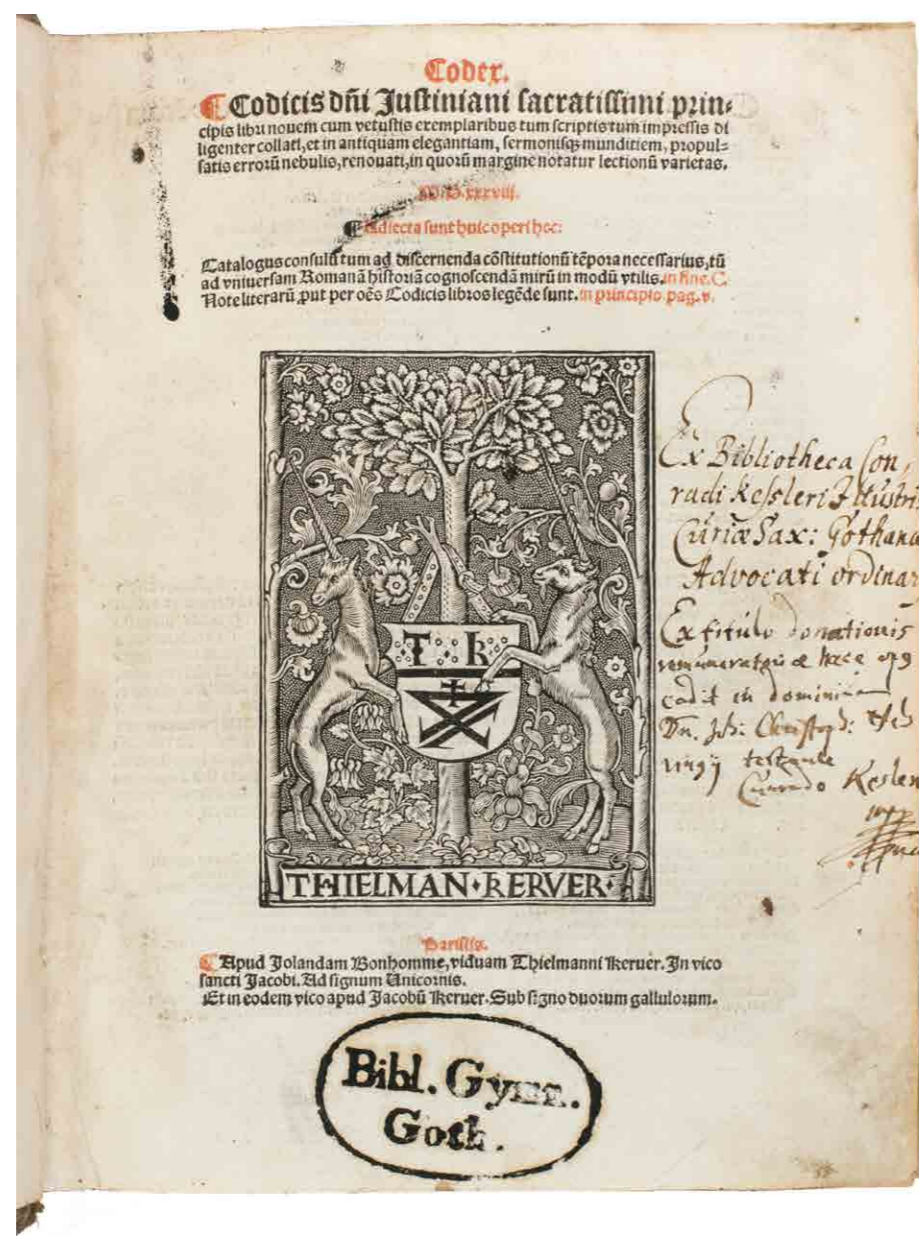 Codex.
Codicis dñi Justiniani sacratissimi prin-
cipis libri novem cum vetustis exemplaribus tum scriptis tum impressis di
ligenter collati, et in antiquam elegantiam, sermonisq; munditiem, propul-
satis errorũ nebulis, renouati, in quorũ margine notatur lectionũ varietas.
M.D.xxxviii.
Adiecta sunt huic operi hec:
Catalogus consulũ tum ad discernenda cõstitutionũ tẽpora necessarius, tũ
ad vniuersam Romanã historiã cognoscendã mirũ in modũ vtilis. in fine. C.
Note literarũ ꝓut per oẽs Codicis libros legẽde sunt. in principio pag. v.
Ex Bibliotheca Con,
radi Kessleri Illustri
Curiæ Sax: Gothana
Advocati ordinar
Ex titulo donationis
hæc
cadit in dominium
Dn. Joh: Christoph:
testante
Cunrado Kesler
T K
THIELMAN KERVER
Parisiis.
Apud Jolandam Bonhomme, viduam Thielmanni Kerver. In vico
sancti Jacobi. Ad signum Unicornis.
Et in eodem vico apud Jacobũ Kerver. Sub signo duorum gallulorum.
Bibl. Gymn.
Goth.